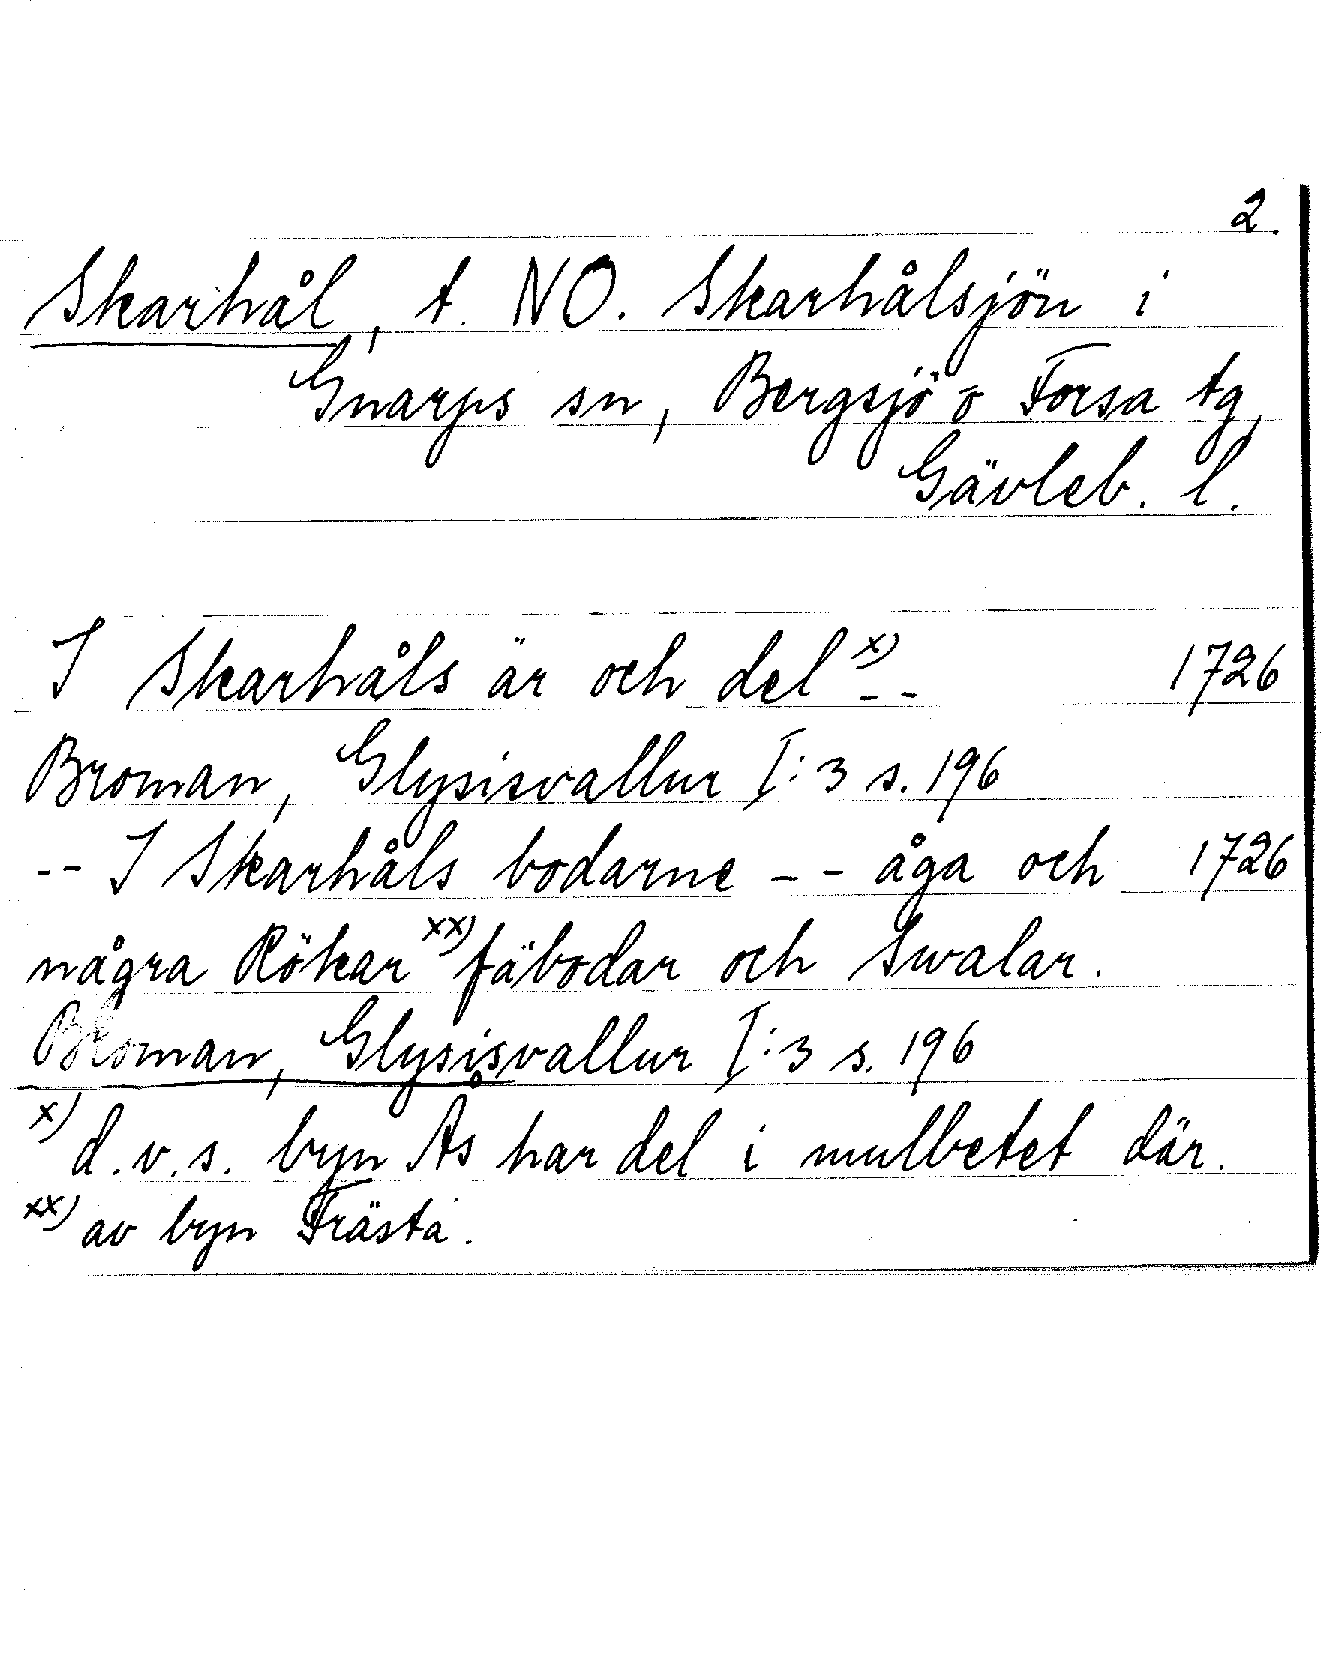 2.
Skarhål, t. NO. Skarhålsjön i
Gnarps sn, Bergsjö o Forsa tg,
Gävleb. l.
I Skarhåls är och del x) - - 1726
Broman, Glysisvallur I:3 s. 196
-- I Skarhåls bodarne -- åga och 1726
några Rökar xx) fäbodar och Swalar.
Broman, Glysisvallur I:3 s. 196
x) d.v.s. byn Ås har del i mulbetet där.
xx) av byn Frästa.